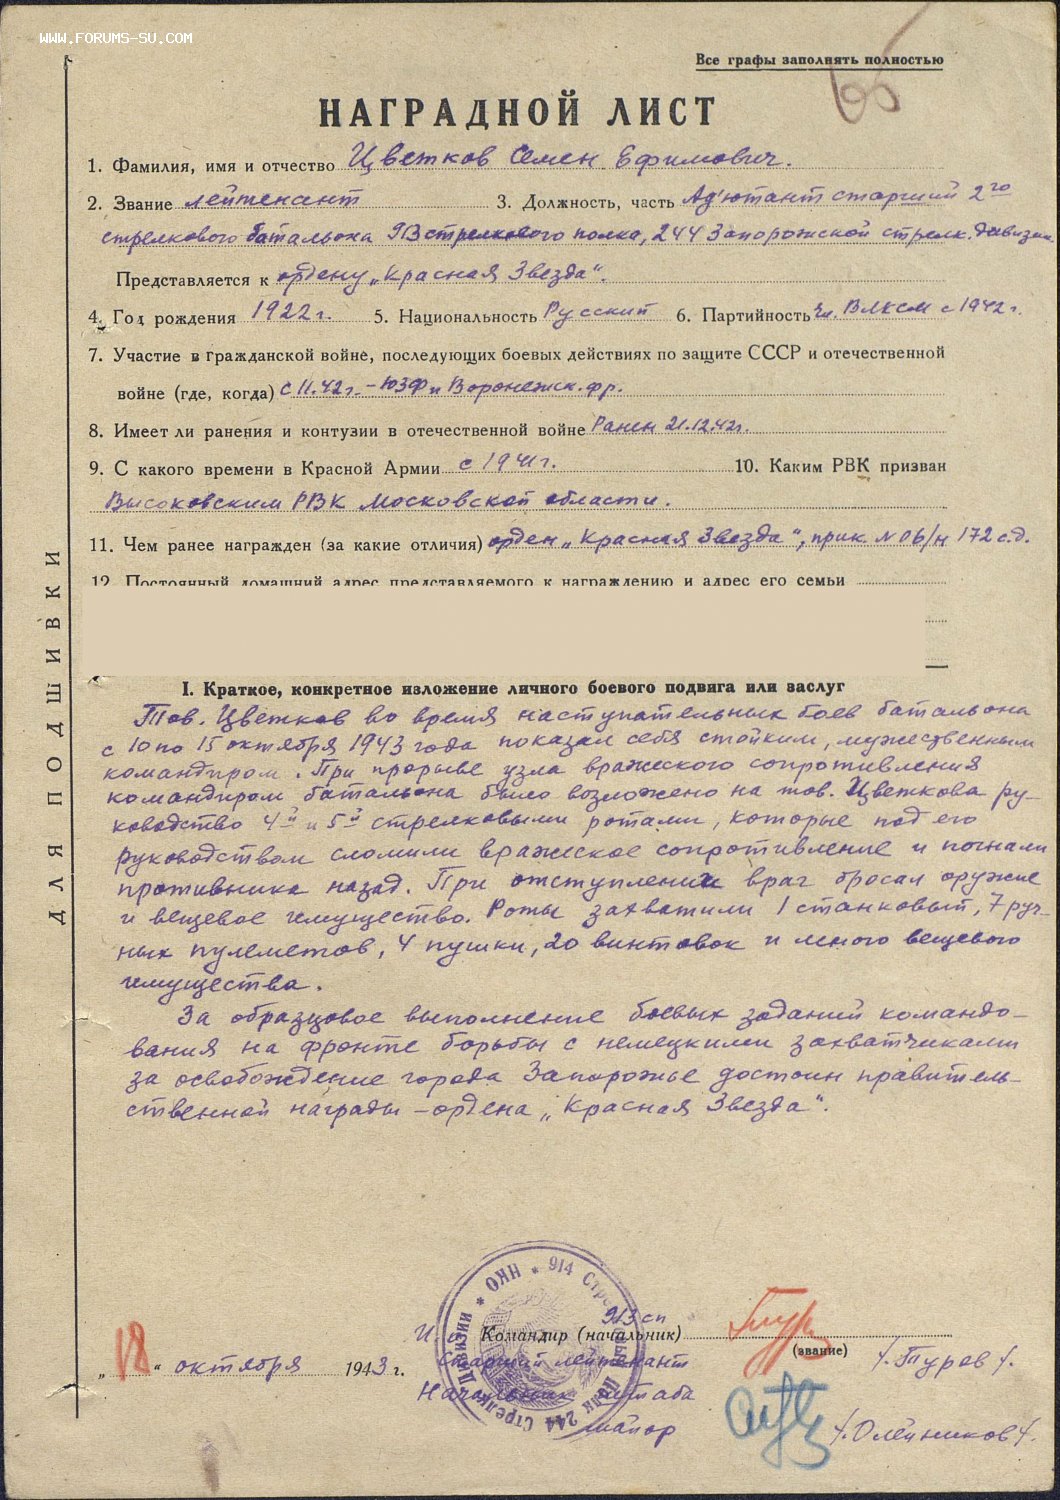 WWW.FORUMS-SU.COM
Все графы заполнять полностью
НАГРАДНОЙ ЛИСТ
1. Фамилия, имя и отчество Цветков Семен Ефимович.
2. Звание лейтенант 3. Должность, часть Ад'ютант старший 2го
стрелкового батальона 913 стрелкового полка, 244 Запорожской стрелк. дивизии
Представляется к ордену „Красная Звезда".
4. Год рождения 1922 г. 5. Национальность Русский 6. Партийность чл. ВЛКСМ с 1942 г.
7. Участие в гражданской войне, последующих боевых действиях по защите СССР и отечественной
войне (где, когда) с 11.42 г. - ЮЗФ и Воронежск. фр.
8. Имеет ли ранения и контузии в отечественной войне Ранен 21.12.42 г.
9. С какого времени в Красной Армии с 1941 г. 10. Каким РВК призван
Высоковским РВК Московской области.
11. Чем ранее награжден (за какие отличия) орден „Красная Звезда", прик. N 06/н 172 с.д.
12. Постоянный домашний адрес представляемого к награждению и адрес его семьи
I. Краткое, конкретное изложение личного боевого подвига или заслуг
Тов. Цветков во время наступательных боев батальона
с 10 по 15 октября 1943 года показал себя стойким, мужественным
командиром. При прорыве узла вражеского сопротивления
командиром батальона было возложено на тов. Цветкова ру-
ководство 4й и 5й стрелковыми ротами, которые под его
руководством сломили вражеское сопротивление и погнали
противника назад. При отступлении враг бросал оружие
и вещевое имущество. Роты захватили 1 станковый, 7 руч-
ных пулеметов, 4 пушки, 20 винтовок и много вещевого
имущества.
За образцовое выполнение боевых заданий командо-
вания на фронте борьбы с немецкими захватчиками
за освобождение города Запорожье достоин правитель-
ственной награды - ордена „Красная Звезда".
НКО * 914 Стрелковый Полк 244 Стрелк. Дивизии *
913 сп
И.о. Командир (начальник)
(звание)
Старший лейтенант /.Туров/.
„18" октября 1943 г.
Начальник штаба
майор /.Олейников/.
ДЛЯ ПОДШИВКИ